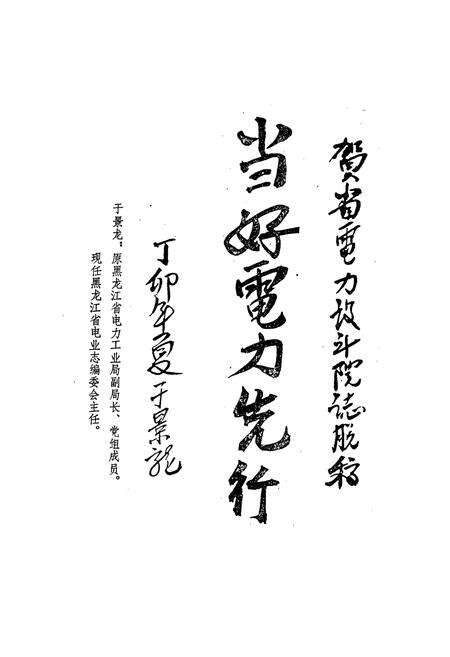 贺省電力设计院誌脱稿
当好電力先行
丁卯年夏于景龍
于景龙：原黑龙江省电力工业局副局长、党组成员。
现任黑龙江省电业志编委会主任。